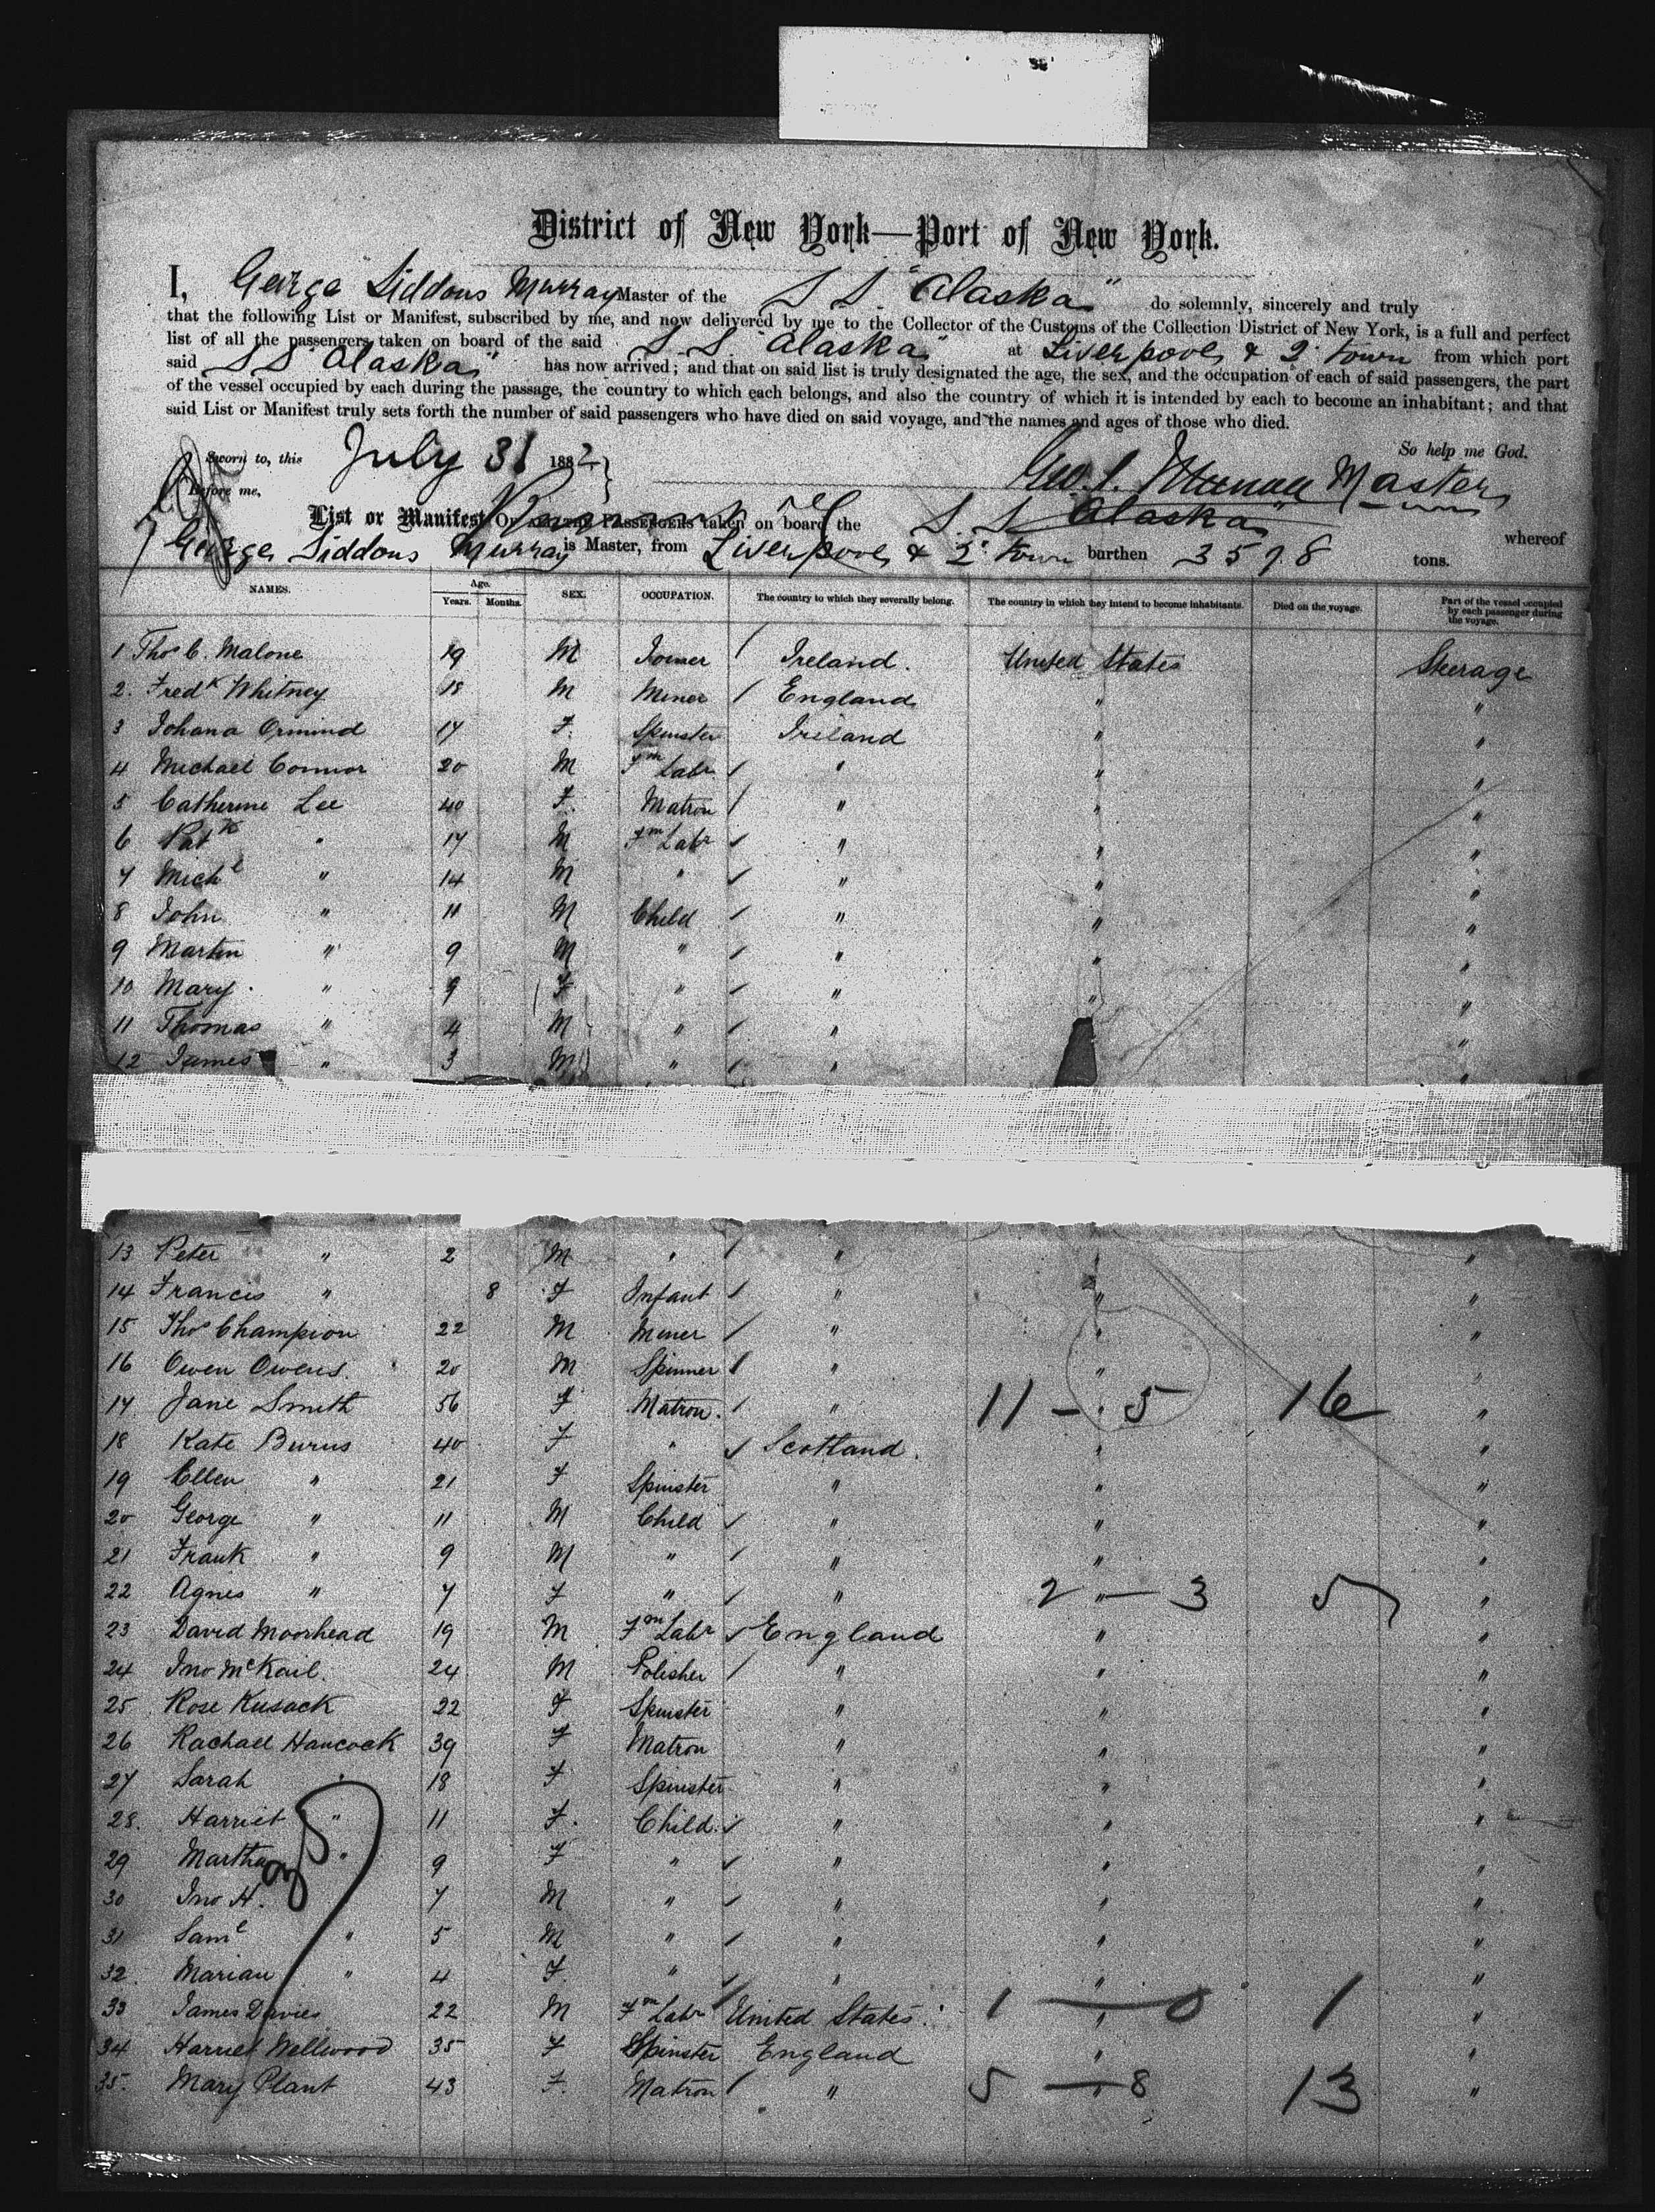 District of New York—Port of New York.
I, George Siddons Murray Master of the S S "Alaska" do solemnly, sincerely and truly
that the following List or Manifest, subscribed by me, and now delivered by me to the Collector of the Customs of the Collection District of New York, is a full and perfect
list of all the passengers taken on board of the said S.S. "Alaska" at Liverpool & Q. town from which port
said S S "Alaska" has now arrived; and that on said list is truly designated the age, the sex, and the occupation of each of said passengers, the part
of the vessel occupied by each during the passage, the country to which each belongs, and also the country of which it is intended by each to become an inhabitant; and that
said List or Manifest truly sets forth the number of said passengers who have died on said voyage, and the names and ages of those who died.
So help me God.
Sworn to, this July 31 1882
Geo. S. Murray Master
Before me,
List or Manifest OF ALL THE PASSENGERS taken on board the S.S. "Alaska" whereof
George Siddons Murray is Master, from Liverpool & Q. town burthen 3578 tons.
NAMES. Age. Years. Months. SEX. OCCUPATION. The country to which they severally belong. The country in which they intend to become inhabitants. Died on the voyage. Part of the vessel occupied by each passenger during the voyage.
1 Thos C. Malone 19 M Joiner Ireland. United States Steerage
2. Fredk Whitney 18 M Miner England " "
3 Johana Ormind 17 F. Spinster Ireland " "
4 Michael Connor 20 M Fm Labr " " "
5 Catherine Lee 40 F. Matron " " "
6 Patk " 17 M Fm Labr " " "
7 Michl " 14 M " " " "
8 John " 11 M Child " " "
9 Martin " 9 M " " " "
10 Mary " 9 F " " " "
11 Thomas " 4 M " " " "
12 James " 3 M " " "
13 Peter " 2 M " " " "
14 Francis " 8 F Infant " " "
15 Thos Champion 22 M Miner " " "
16 Owen Owens. 20 M Spinner " " "
17 Jane Smith 56 F Matron. " 11 - 5 16 "
18 Kate Burns 40 F " Scotland. " "
19 Ellen " 21 F Spinster " " "
20 George " 11 M Child " " "
21 Frank " 9 M " " " "
22 Agnes " 7 F " " 2 " - 3 5 "
23 David Moorhead 19 M Fm Labr England " "
24 Jno McKail. 24 M Polisher " " "
25 Rose Kusack 22 F Spinster " " "
26 Rachael Hancock 39 F Matron " " "
27 Sarah " 18 F Spinster " " "
28. Harriet " 11 F. Child. " " "
29 Martha " 9 F " " " "
30 Jno H. 7 M " " " "
31 Saml " 5 M " " " "
32. Marian " 4 F. " " " "
33 James Davies 22 M Fm Labr United States. 1 - 0 1 "
34 Harriet Wellwood 35 F Spinster England " "
35. Mary Plant 43 F. Matron " 5 - 8 13 "